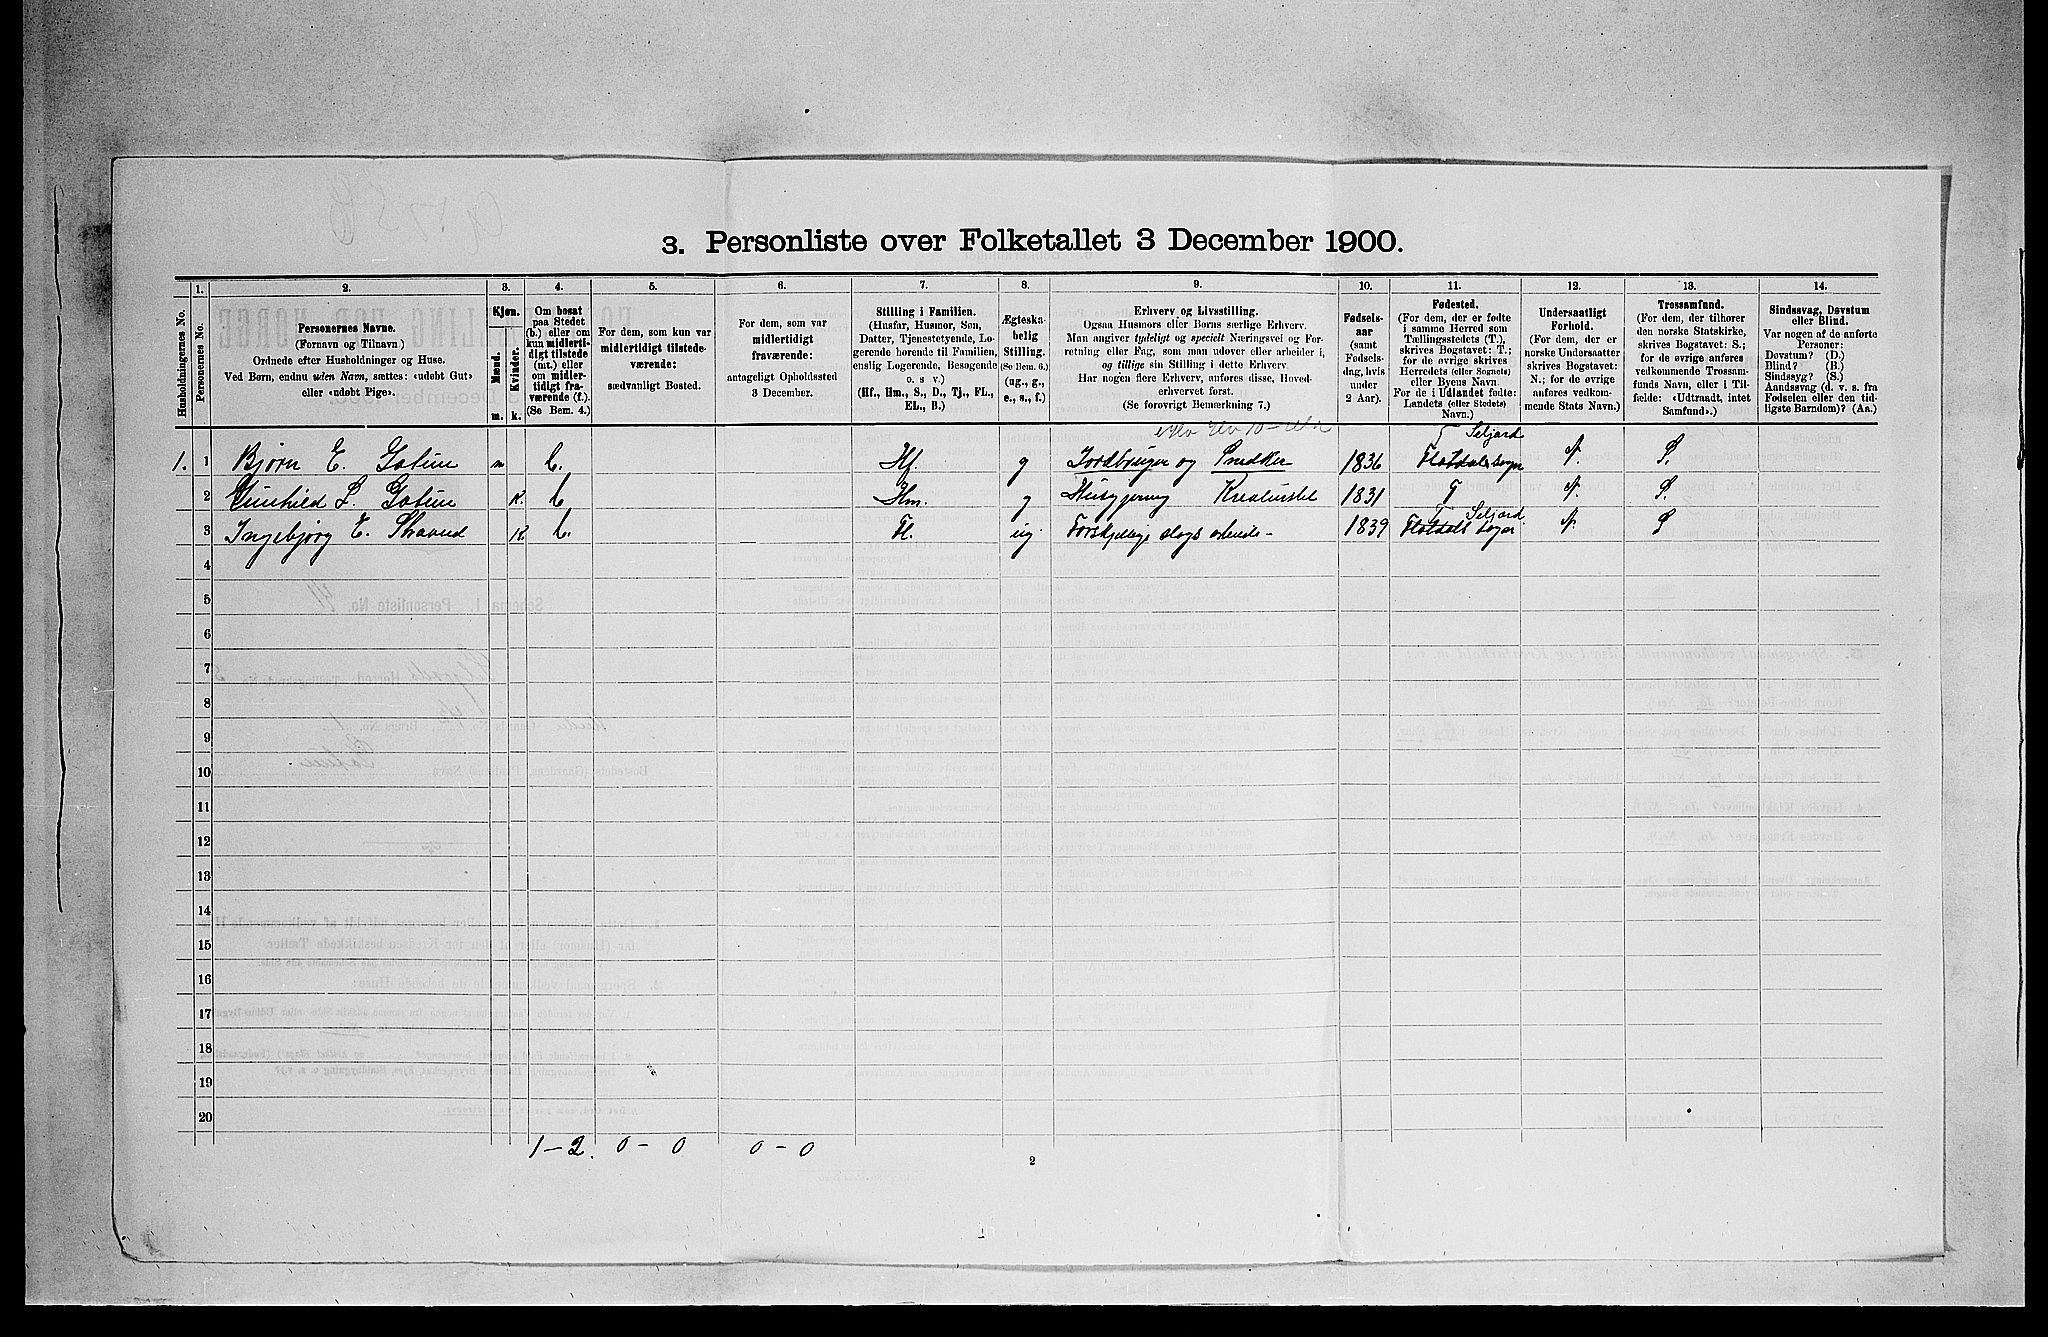 3. Personliste over Folketallet 3 December 1900.
1. 2. 3. 4. 5. 6. 7. 8. 9. 10. 11. 12. 13. 14.
Husholdningernes No.
Personernes No.
Personernes Navne.
(Fornavn og Tilnavn.)
Ordnede efter Husholdninger og Huse.
Ved Børn, endnu uden Navn, sættes: «udøbt Gut»
eller «udøbt Pige».
Kjøn.
Mænd.
Kvinder.
m. k.
Om bosat
paa Stedet
(b.) eller om
kun midlerti-
digt tilstede
(mt.) eller
om midler-
tidigt fra-
værende (f.).
(Se Bem. 4.)
For dem, som kun var
midlertidigt tilstede-
værende:
sædvanligt Bosted.
For dem, som var
midlertidigt
fraværende:
antageligt Opholdssted
3 December.
Stilling i Familien.
(Husfar, Husmor, Søn,
Datter, Tjenestetyende, Lo-
gerende hørende til Familien,
enslig Logerende, Besøgende
o. s. v.)
(Hf., Hm., S., D., Tj., FL.,
EL., B.)
Ægteska-
belig
Stilling.
(Se Bem. 6.)
(ug., g.,
e., s., f.)
Erhverv og Livsstilling.
Ogsaa Husmors eller Børns særlige Erhverv.
Man angiver tydeligt og specielt Næringsvei og For-
retning eller Fag, som man udøver eller arbeider i,
og tillige sin Stilling i dette Erhverv.
Har nogen flere Erhverv, anføres disse, Hoved-
erhvervet først.
(Se forøvrigt Bemærkning 7.)
Fødsels-
aar
(samt
Fødsels-
dag, hvis
under
2 Aar).
Fødested.
(For dem, der er fødte
i samme Herred som
Tællingsstedets (T.),
skrives Bogstavet: T.;
for de øvrige skrives
Herredets (eller Sognets)
eller Byens Navn.
For de i Udlandet fødte:
Landets (eller Stedets)
Navn.)
Undersaatligt
Forhold.
(For dem, der er
norske Undersaatter
skrives Bogstavet:
N.; for de øvrige
anføres vedkom-
mende Stats Navn.)
Trossamfund.
(For dem, der tilhører
den norske Statskirke,
skrives Bogstavet: S.;
for de øvrige anføres
vedkommende Trossam-
funds Navn, eller i Til-
fælde: «Udtraadt, intet
Samfund».)
Sindssvag, Døvstum
eller Blind.
Var nogen af de anførte
Personer:
Døvstum? (D.)
Blind? (B.)
Sindssyg? (S.)
Aandssvag (d. v. s. fra
Fødselen eller den tid-
ligste Barndom)? (Aa.)
T Seljord
1. 1 Bjørn E. m b. Hf. g Jordbruger og Snedker 1836 Flatdals sogn N. S.
2 Gunhild S. K. b Hm. g Husgjerning Kreaturstel 1831 T N. S.
T Seljord
3 Ingebjørg E. K b. Fl. ug. Forskjellige slags arbeide - 1839 Flatdals sogn N. S
4
5
6
7
8
9
10
11
12
13
14
15
16
17
18
19
20
1 – 2. 0 – 0 0 – 0
2